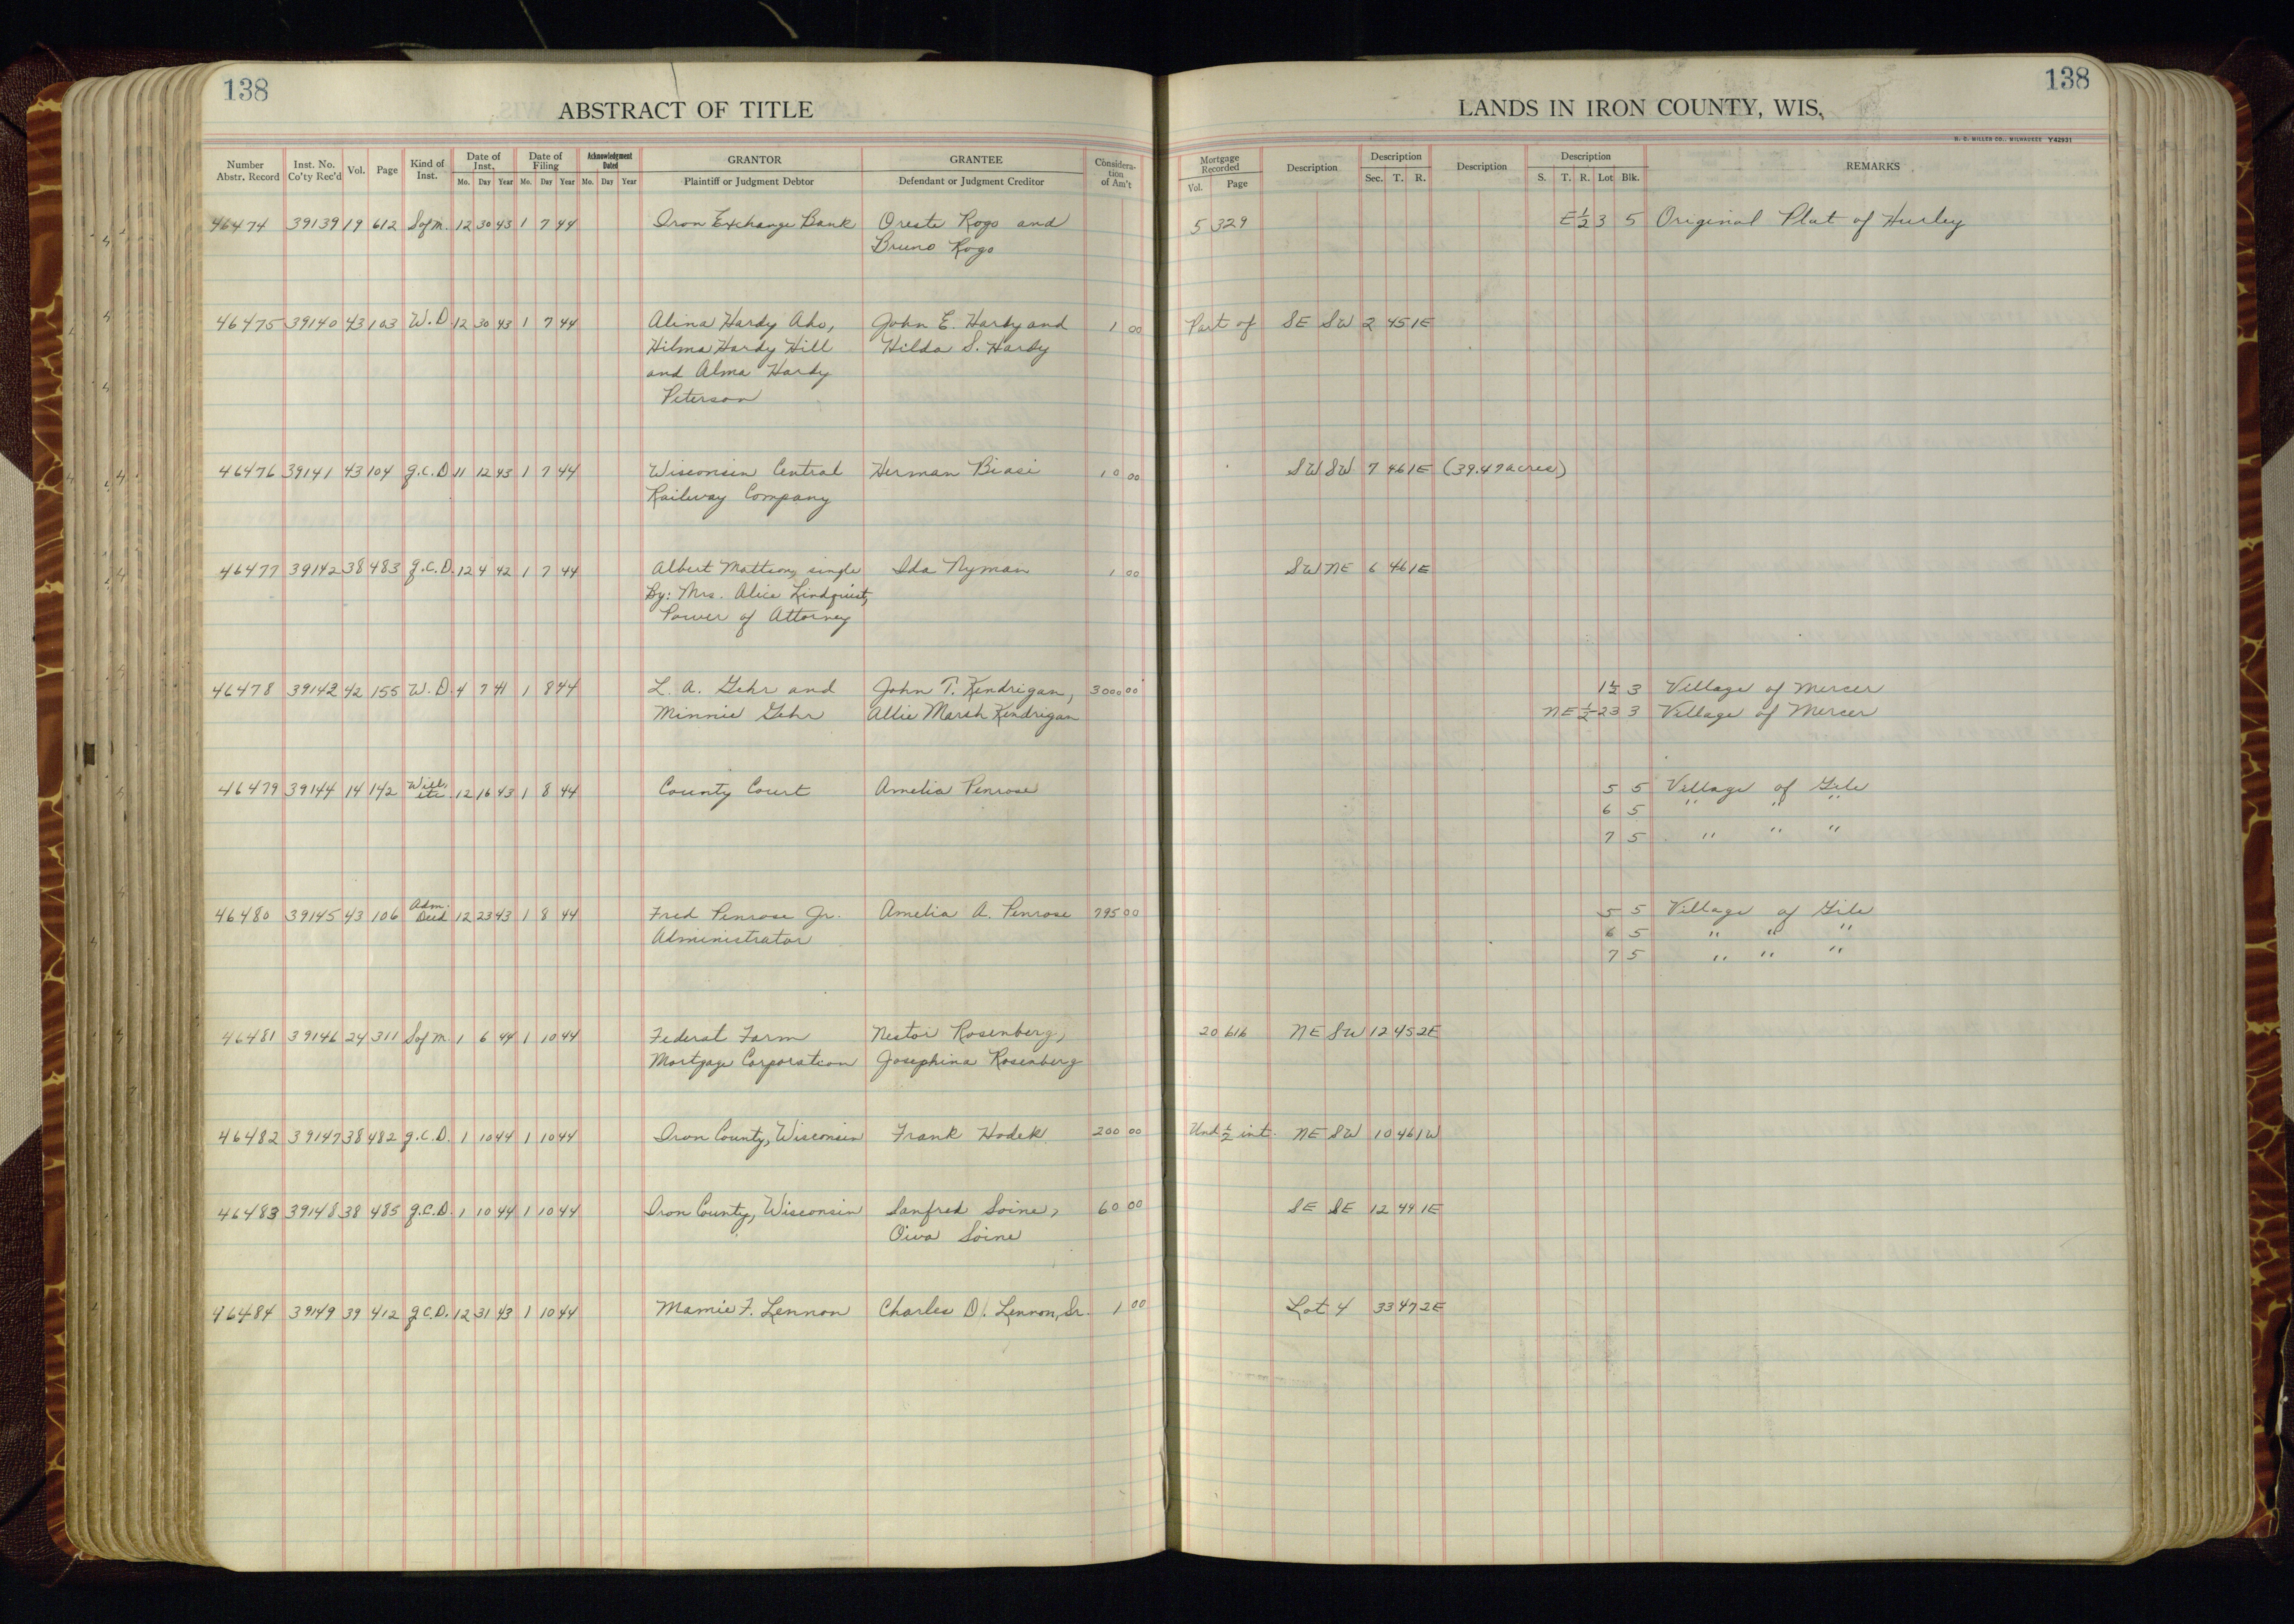 138
ABSTRACT OF TITLE
LANDS IN IRON COUNTY, WIS.
138
H. C. MILLER CO., MILWAUKEE Y42931
Number Abstr. Record Inst. No. Co'ty Rec'd Vol. Page Kind of Inst. Date of Inst. Mo. Day Year Date of Filing Mo. Day Year Acknowledgment Dated Mo. Day Year GRANTOR Plaintiff or Judgment Debtor GRANTEE Defendant or Judgment Creditor Considera-tion of Am't Mortgage Recorded Vol. Page Description Description Sec. T. R. Description Description S. T. R. Lot Blk. REMARKS
46474 39139 19 612 Sofm. 12 30 43 1 7 44 Iron Exchange Bank Oreste Rogo and 5 329 E 1/2 3 5 Original Plat of Hurley
Bruno Rogo
46475 39140 43 103 W.D. 12 30 43 1 7 44 Alina Hardy Aho, John E. Hardy and 1 00 Part of SE SW 2 45 1E
Hilma Hardy Hill Hilda S. Hardy
and Alma Hardy
Peterson
46476 39141 43 104 q.C.D 11 12 43 1 7 44 Wisconsin Central Herman Biasi 10 00 SW SW 7 46 1E (39.47 acres)
Railway Company
46477 39142 38 483 q.C.D. 12 4 42 1 7 44 Albert Mattson, single Ida Nyman 1 00 SW NE 6 46 1E
By: Mrs. Alice Lindquist,
Power of Attorney
46478 39143 42 155 W.D. 4 7 41 1 8 44 L. A. Gehr and John T. Kendrigan, 3000 00 1 1/2 3 Village of Mercer
Minnie Gehr Allie Marsh Kendrigan NE 1/2 23 3 Village of Mercer
46479 39144 14 142 Will, etc. 12 16 43 1 8 44 County Court Amelia Penrose 5 5 Village of Gile
6 5 " " "
7 5 " " "
46480 39145 43 106 Adm. Deed 12 23 43 1 8 44 Fred Penrose Jr. Amelia A. Penrose 795 00 5 5 Village of Gile
Administrator 6 5 " " "
7 5 " " "
46481 39146 24 311 Sofm. 1 6 44 1 10 44 Federal Farm Nestor Rosenberg, 20 616 NE SW 12 45 2E
Mortgage Corporation Josephina Rosenberg
46482 39147 38 482 q.C.D. 1 10 44 1 10 44 Iron County, Wisconsin Frank Hodek 200 00 Und 1/2 int. NE SW 10 46 1W
46483 39148 38 485 q.C.D. 1 10 44 1 10 44 Iron County, Wisconsin Sanfred Soine, 60 00 SE SE 12 44 1E
Oiva Soine
46484 39149 39 412 q.C.D. 12 31 43 1 10 44 Mamie F. Lennon Charles D. Lennon, Sr. 1 00 Lot 4 33 47 2E